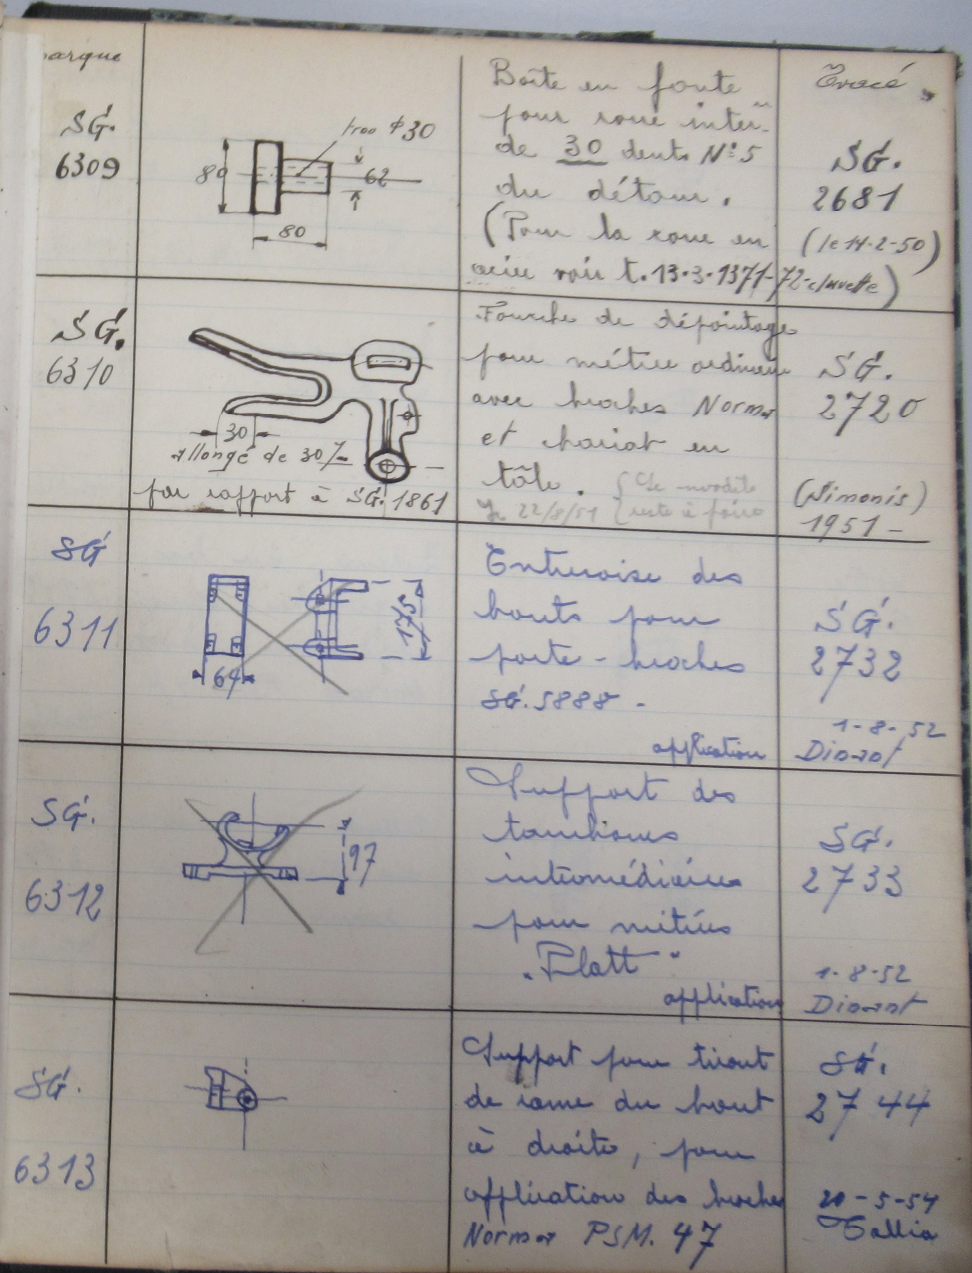 arque
Tracé
SG.
6309
trou φ30
80
62
80
Boîte en fonte
pour roue inter.
de 30 dents N°5
du détour.
(Pour la roue en
acier voir t.13.3.1371-72-clavette)
SG.
2681
(le 14-2-50)
SG.
6310
30
allongé de 30%
par rapport à SG. 1861
Fourche de dépointage
pour métier ordinaire
avec broches Norma
et chariot en
tôle.
22/8/51
reste à faire
SG.
2720
(Simonis)
1951-
SG
6311
64
175
Entretoise des
bouts pour
porte-broches
SG.5888-
application
SG.
2732
1-8-52
Dionant
SG.
6312
97
Support des
tambours
intermédiaires
pour métiers
"Platt"
application
SG.
2733
1-8-52
Dionant
SG.
6313
Support pour tirant
de rame du bout
à droite, pour
application des broches
Norma PSM.47
SG.
2744
20-5-54
Tallia